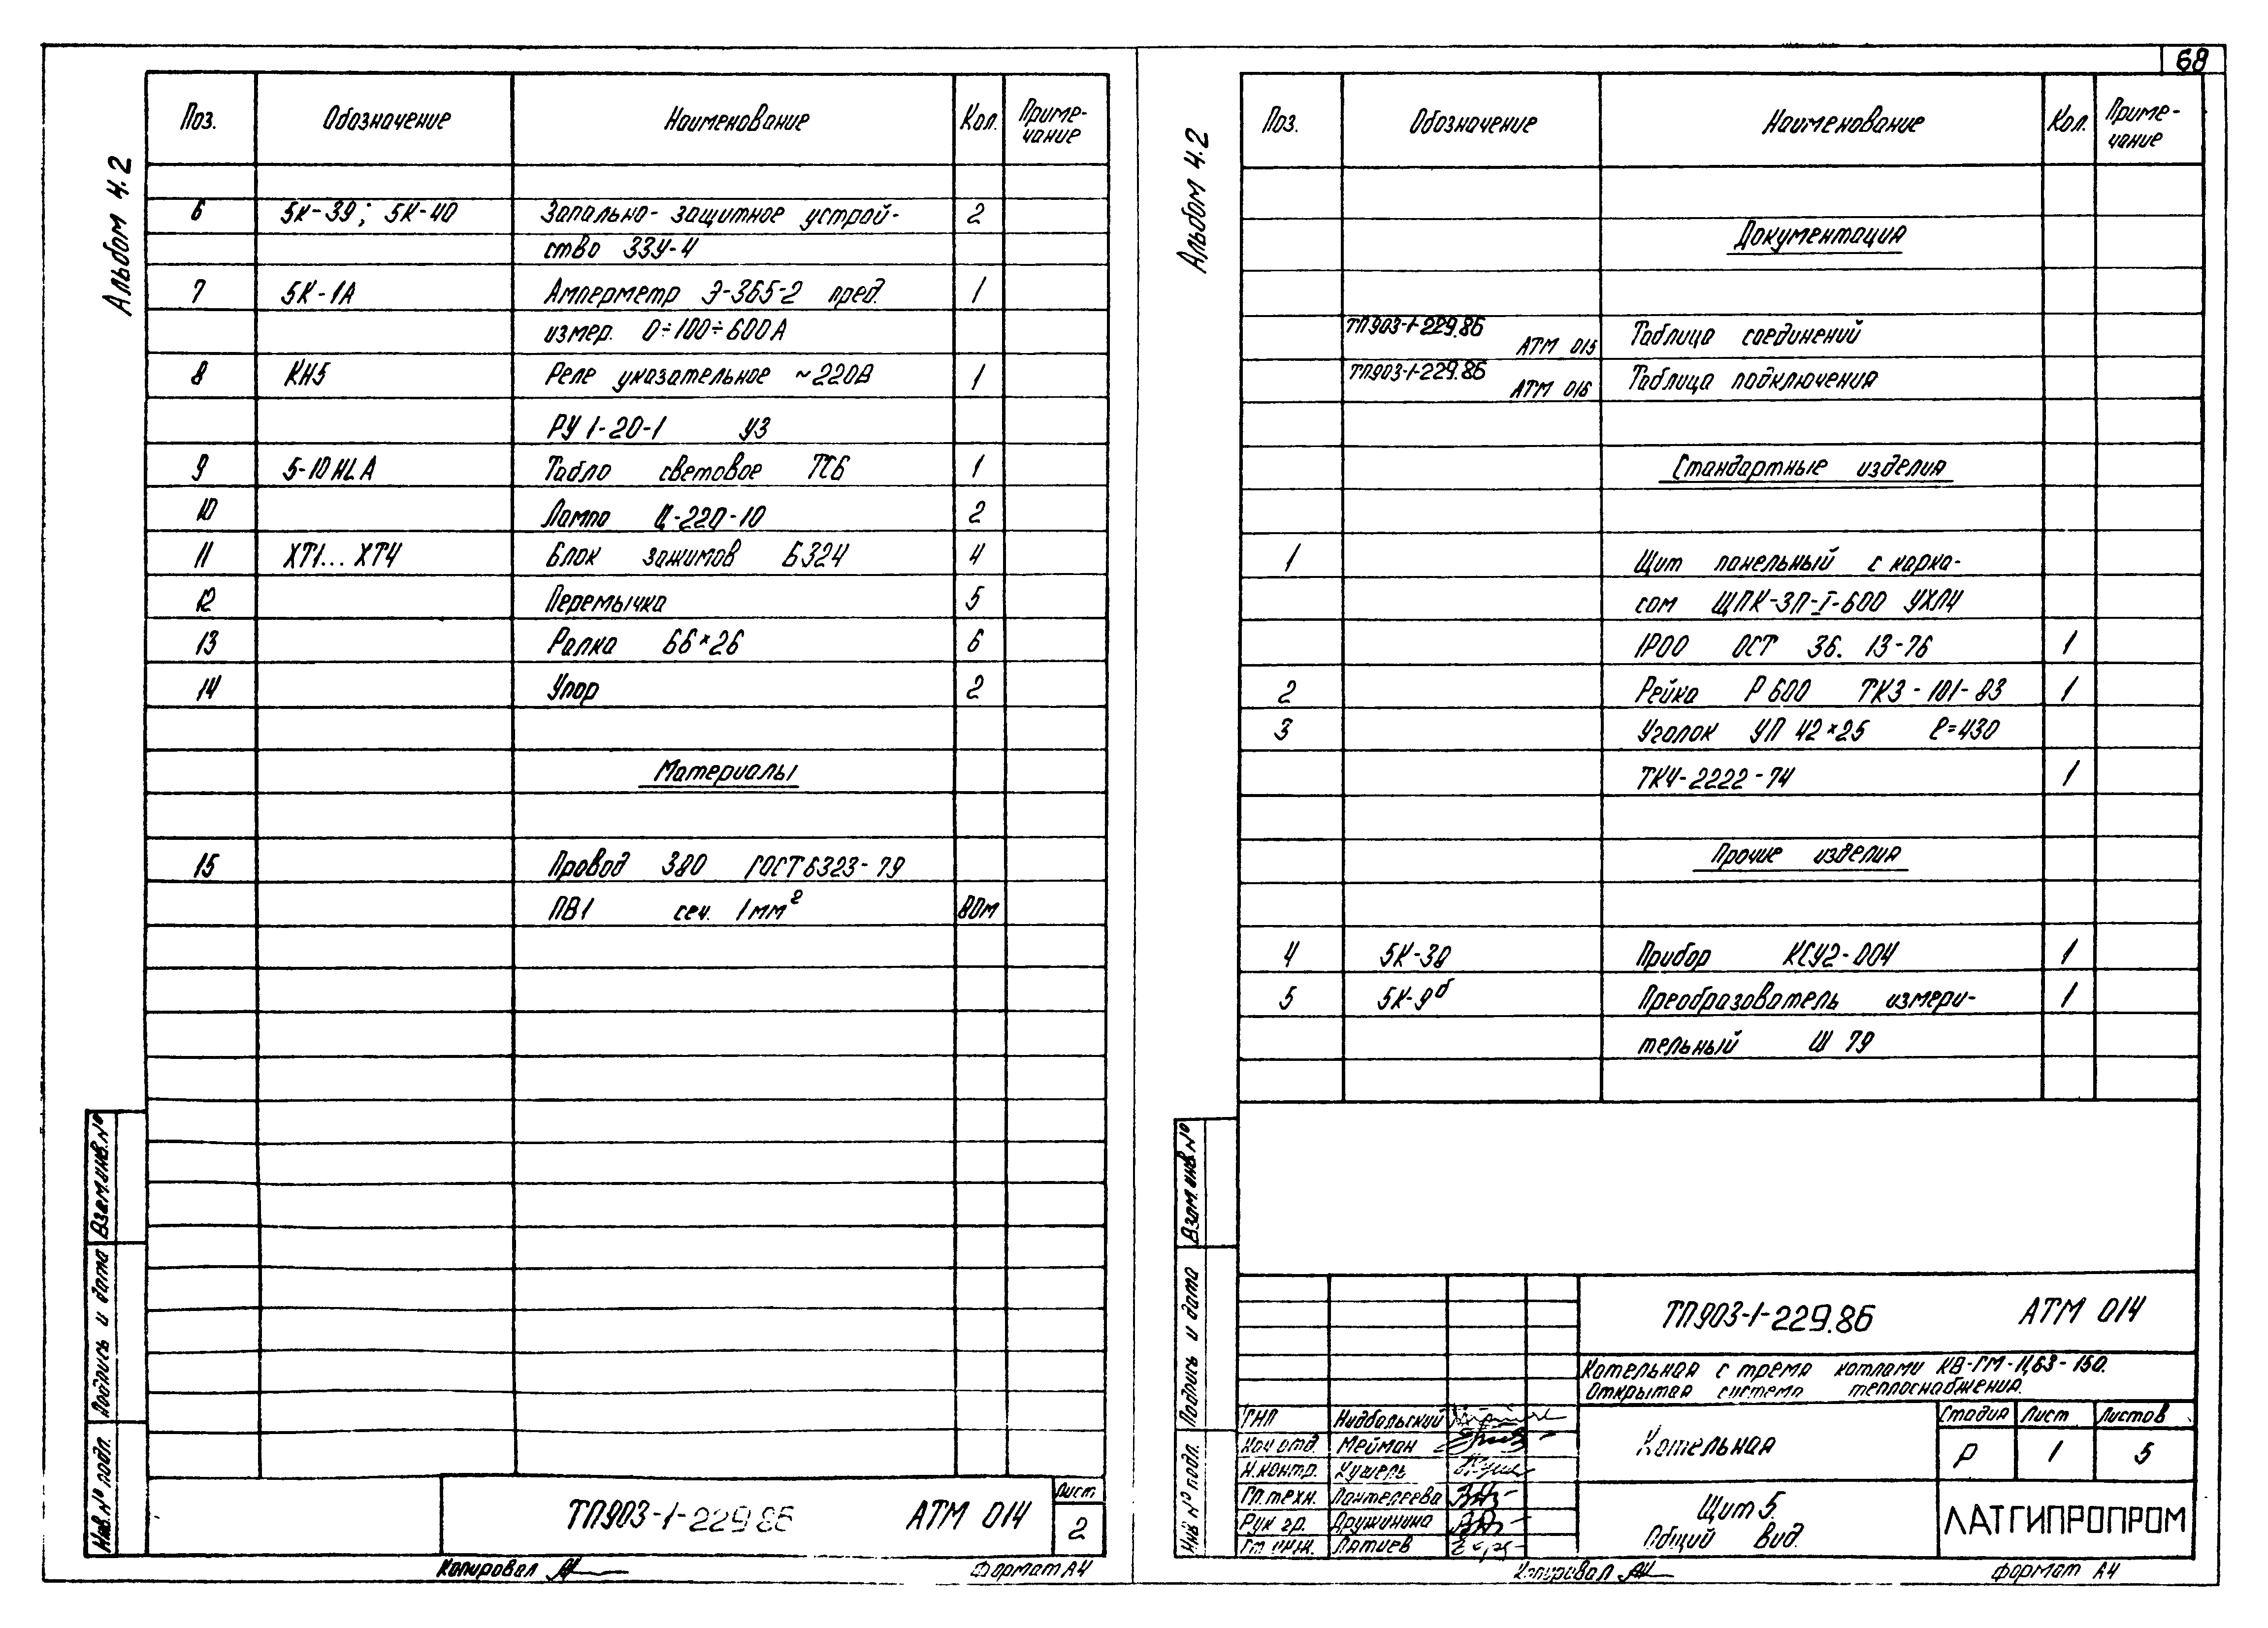 68
Альбом 4.2
Поз. Обозначение Наименование Кол. Приме-
чание
6 5К-39; 5К-40 Запально- защитное устрой- 2
ство ЗЗУ-4
7 5К-1А Амперметр Э-365-2 пред. 1
измер. 0÷100÷600А
8 КН5 Реле указательное ~220В 1
РУ1-20-1 У3
9 5-10HLA Табло световое ТСБ 1
10 Лампа Ц-220-10 2
11 ХТ1...ХТ4 Блок зажимов Б324 4
12 Перемычка 5
13 Рамка 66×26 6
14 Упор 2
Материалы
15 Провод 380 ГОСТ 6323-79
ПВ1 сеч. 1мм² 80м
Взам.инв.№
Подпись и дата
Инв.№ подл.
ТП903-1-229.86 АТМ 014
Лист
2
Копировал
Формат А4
Альбом 4.2
Поз. Обозначение Наименование Кол. Приме-
чание
Документация
ТП903-1-229.86
АТМ 015 Таблица соединений
ТП903-1-229.86
АТМ 016 Таблица подключения
Стандартные изделия
1 Щит панельный с карка-
сом ЩПК-3П-I-600 УХЛ4
IP00 ОСТ 36. 13-76 1
2 Рейка Р600 ТК3-101-83 1
3 Уголок УП 42×25 ℓ=430
ТК4-2222-74 1
Прочие изделия
4 5К-38 Прибор КСУ2-004 1
5 5К-9б Преобразователь измери- 1
тельный Ш 79
Взам.инв.№
Подпись и дата
Инв № подл.
ТП903-1-229.86 АТМ 014
Котельная с тремя котлами КВ-ГМ-11,63-150.
Открытая система теплоснабжения.
ГИП Нидбальский
Нач отд. Мейман
Н.контр. Кушель
Гл.техн. Пантелеева
Рук гр. Дружинина
Ст инж. Лятиев
Котельная
Стадия Лист Листов
Р 1 5
Щит 5.
Общий вид.
ЛАТГИПРОПРОМ
Копировал
Формат А4